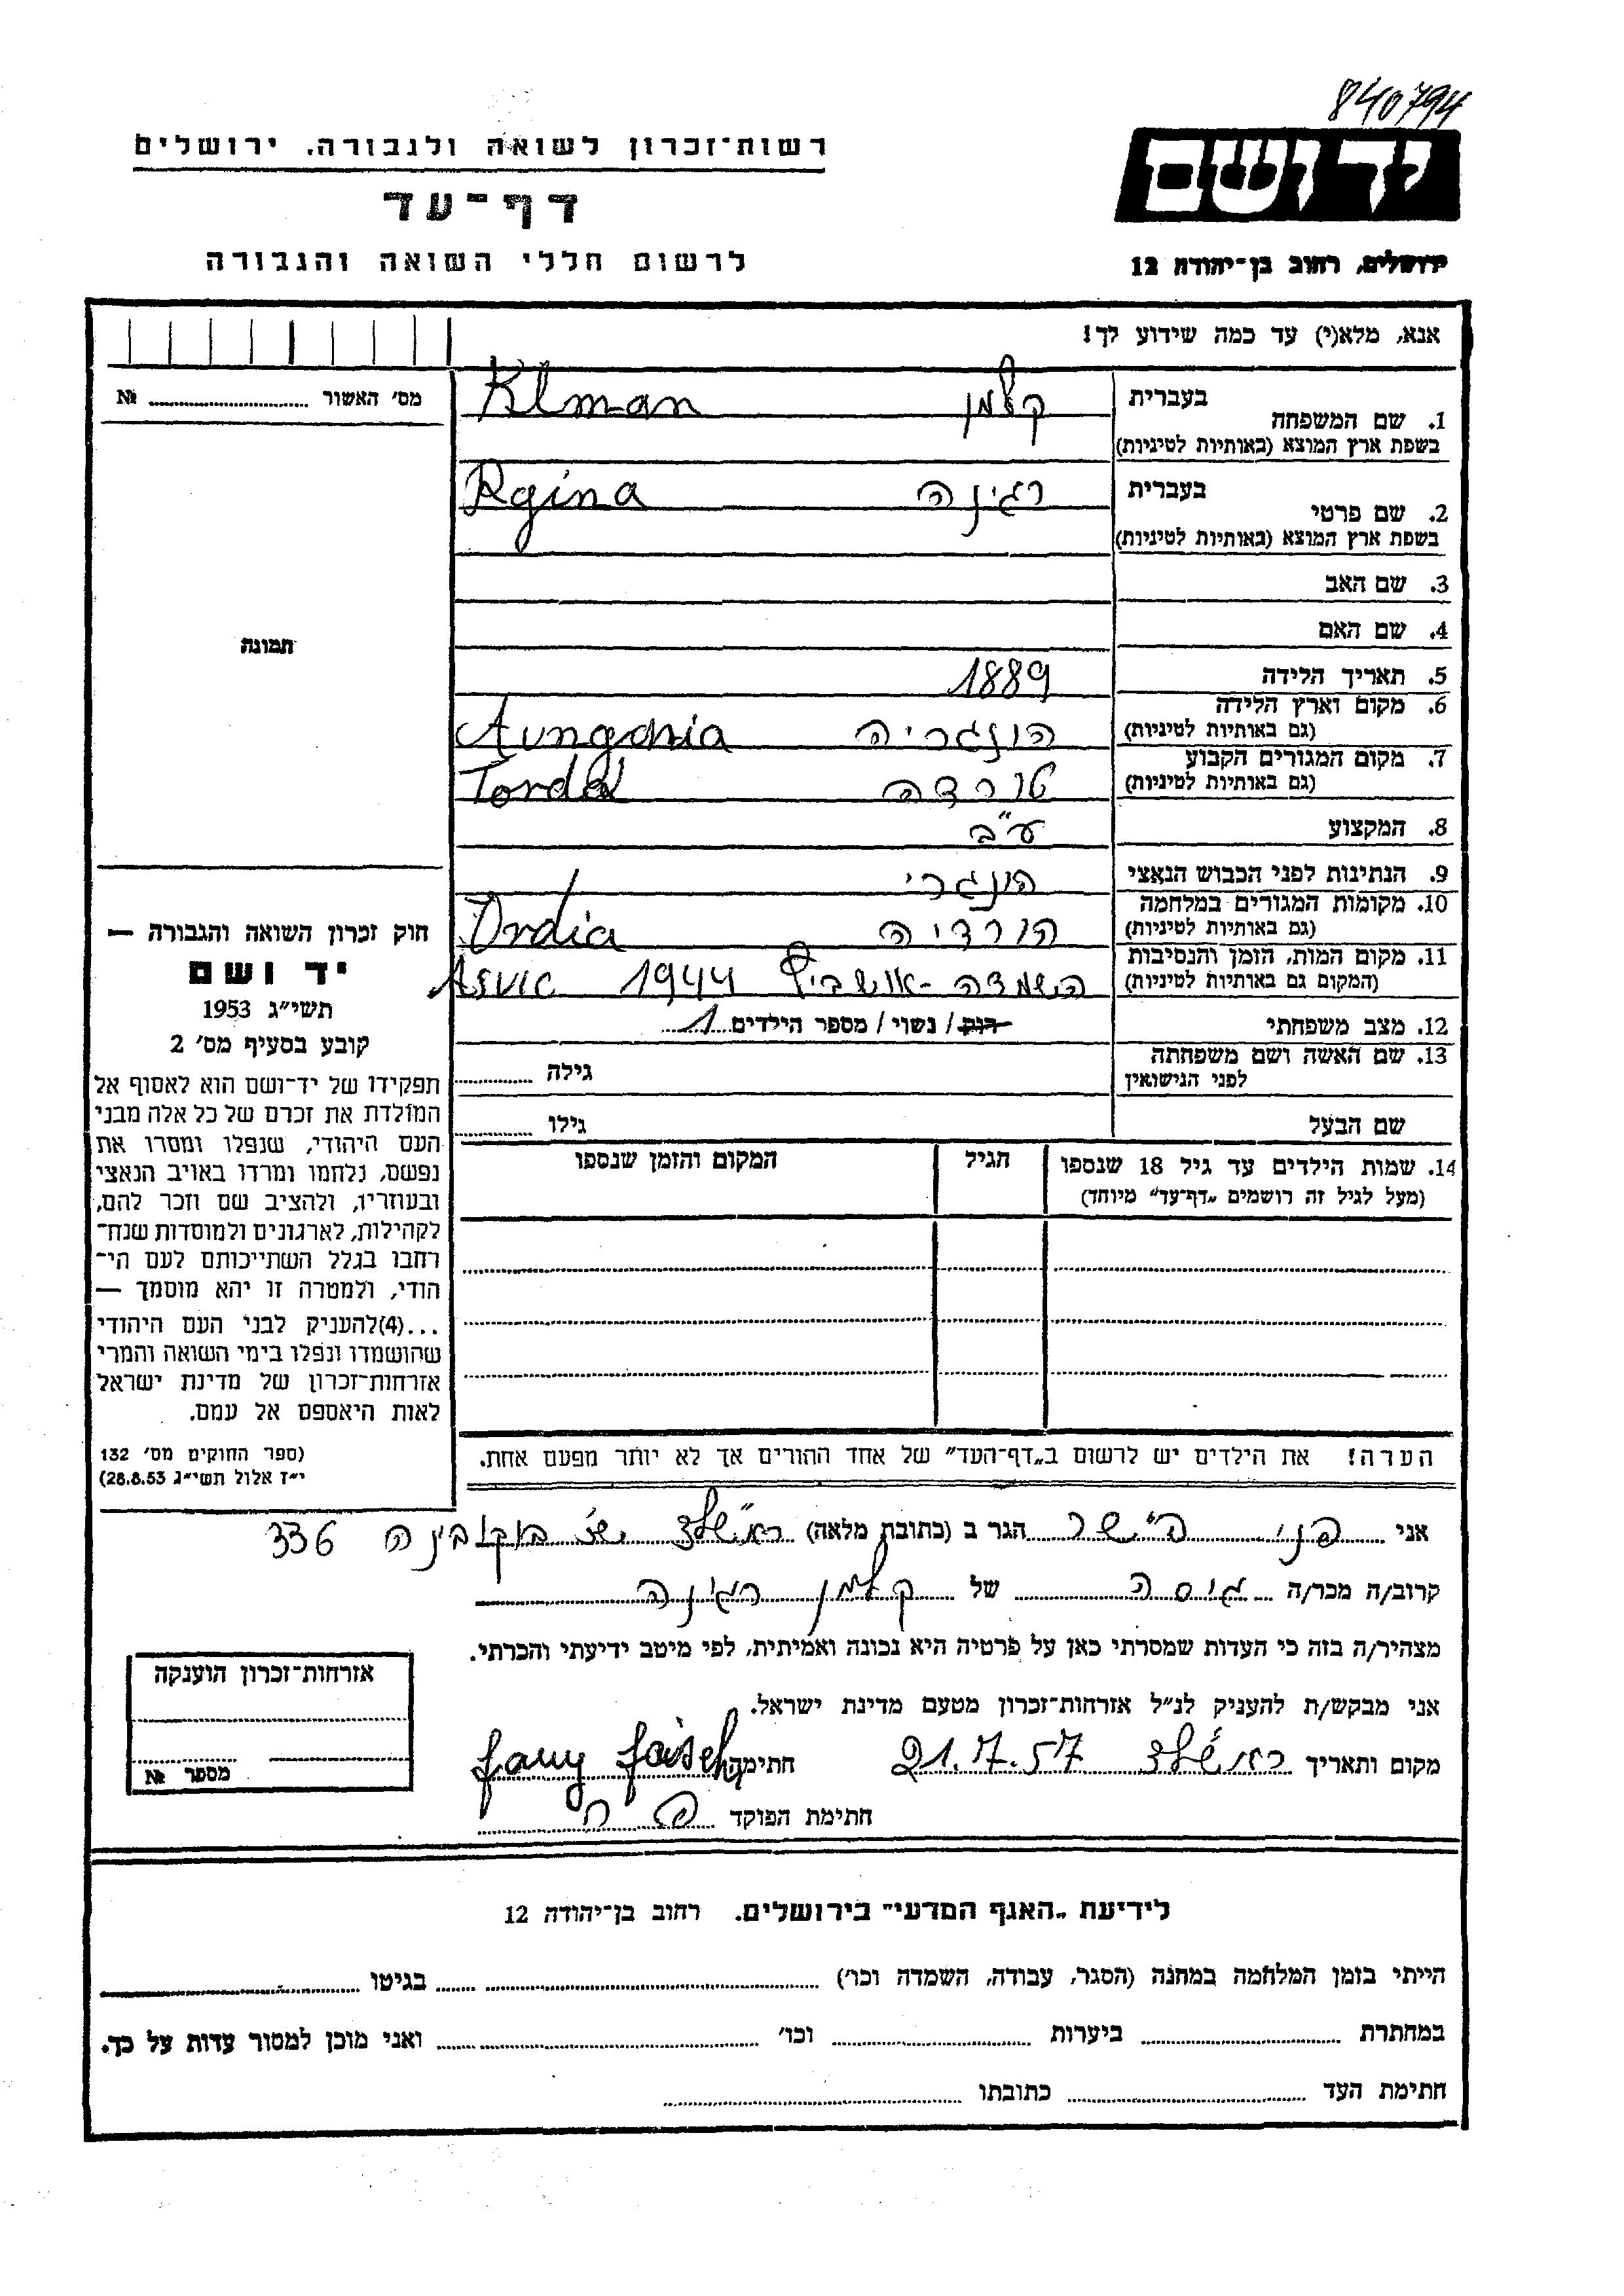 840794
יד ושם
ירושלים, רחוב בן־יהודה 12
רשות־זכרון לשואה ולגבורה, ירושלים
דף־עד
לרשום חללי השואה והגבורה
אנא, מלא(י) עד כמה שידוע לך!
מס׳ האשור № 
תמונה
1. שם המשפחה בעברית קלמן Klman
בשפת ארץ המוצא (באותיות לטיניות)
2. שם פרטי בעברית רגינה Rgina
בשפת ארץ המוצא (באותיות לטיניות)
3. שם האב
4. שם האם
5. תאריך הלידה 1889
6. מקום וארץ הלידה הונגריה Aungaria
(גם באותיות לטיניות)
7. מקום המגורים הקבוע טורדה Torda
(גם באותיות לטיניות)
8. המקצוע ע"ב
9. הנתינות לפני הכבוש הנאצי הונגרי
10. מקומות המגורים במלחמה הורדיה Ordia
(גם באותיות לטיניות)
11. מקום המות, הזמן והנסיבות השמדה - אושביץ 1944 Asvic
(המקום גם באותיות לטיניות)
12. מצב משפחתי רוק / נשוי / מספר הילדים 1
13. שם האשה ושם משפחתה גילה
לפני הנישואין
שם הבעל גילו
14. שמות הילדים עד גיל 18 שנספו הגיל המקום והזמן שנספו
(מעל לגיל זה רושמים „דף־עד" מיוחד)
חוק זכרון השואה והגבורה —
יד ושם
תשי״ג 1953
קובע בסעיף מס׳ 2
תפקידו של יד־ושם הוא לאסוף אל
המולדת את זכרם של כל אלה מבני
העם היהודי, שנפלו ומסרו את
נפשם, נלחמו ומרדו באויב הנאצי
ובעוזריו, ולהציב שם וזכר להם,
לקהילות, לארגונים ולמוסדות שנח־
רחבו בגלל השתייכותם לעם הי־
הודי, ולמטרה זו יהא מוסמך —
...(4)להעניק לבני העם היהודי
שהושמדו ונפלו בימי השואה והמרי
אזרחות־זכרון של מדינת ישראל
לאות היאספם אל עמם.
(ספר החוקים מס׳ 132
י״ז אלול תשי״ג 28.8.53)
הערה! את הילדים יש לרשום ב„דף־העד" של אחד ההורים אך לא יותר מפעם אחת.
אני פני פישר הגר ב (כתובת מלאה) ראשל"צ שכ' בוקובינה 336
קרוב/ה מכר/ה גיסה של קלמן רגינה
מצהיר/ה בזה כי העדות שמסרתי כאן על פרטיה היא נכונה ואמיתית, לפי מיטב ידיעתי והכרתי.
אני מבקש/ת להעניק לנ״ל אזרחות־זכרון מטעם מדינת ישראל.
מקום ותאריך ראשל"צ 21.7.57 חתימה
חתימת הפוקד
אזרחות־זכרון הוענקה
מספר №
לידיעת „האגף המדעי" בירושלים. רחוב בן־יהודה 12
הייתי בזמן המלחמה במחנה (הסגר, עבודה, השמדה וכו׳) בגיטו
במחתרת ביערות וכו׳ ואני מוכן למסור עדות על כך.
חתימת העד כתובתו